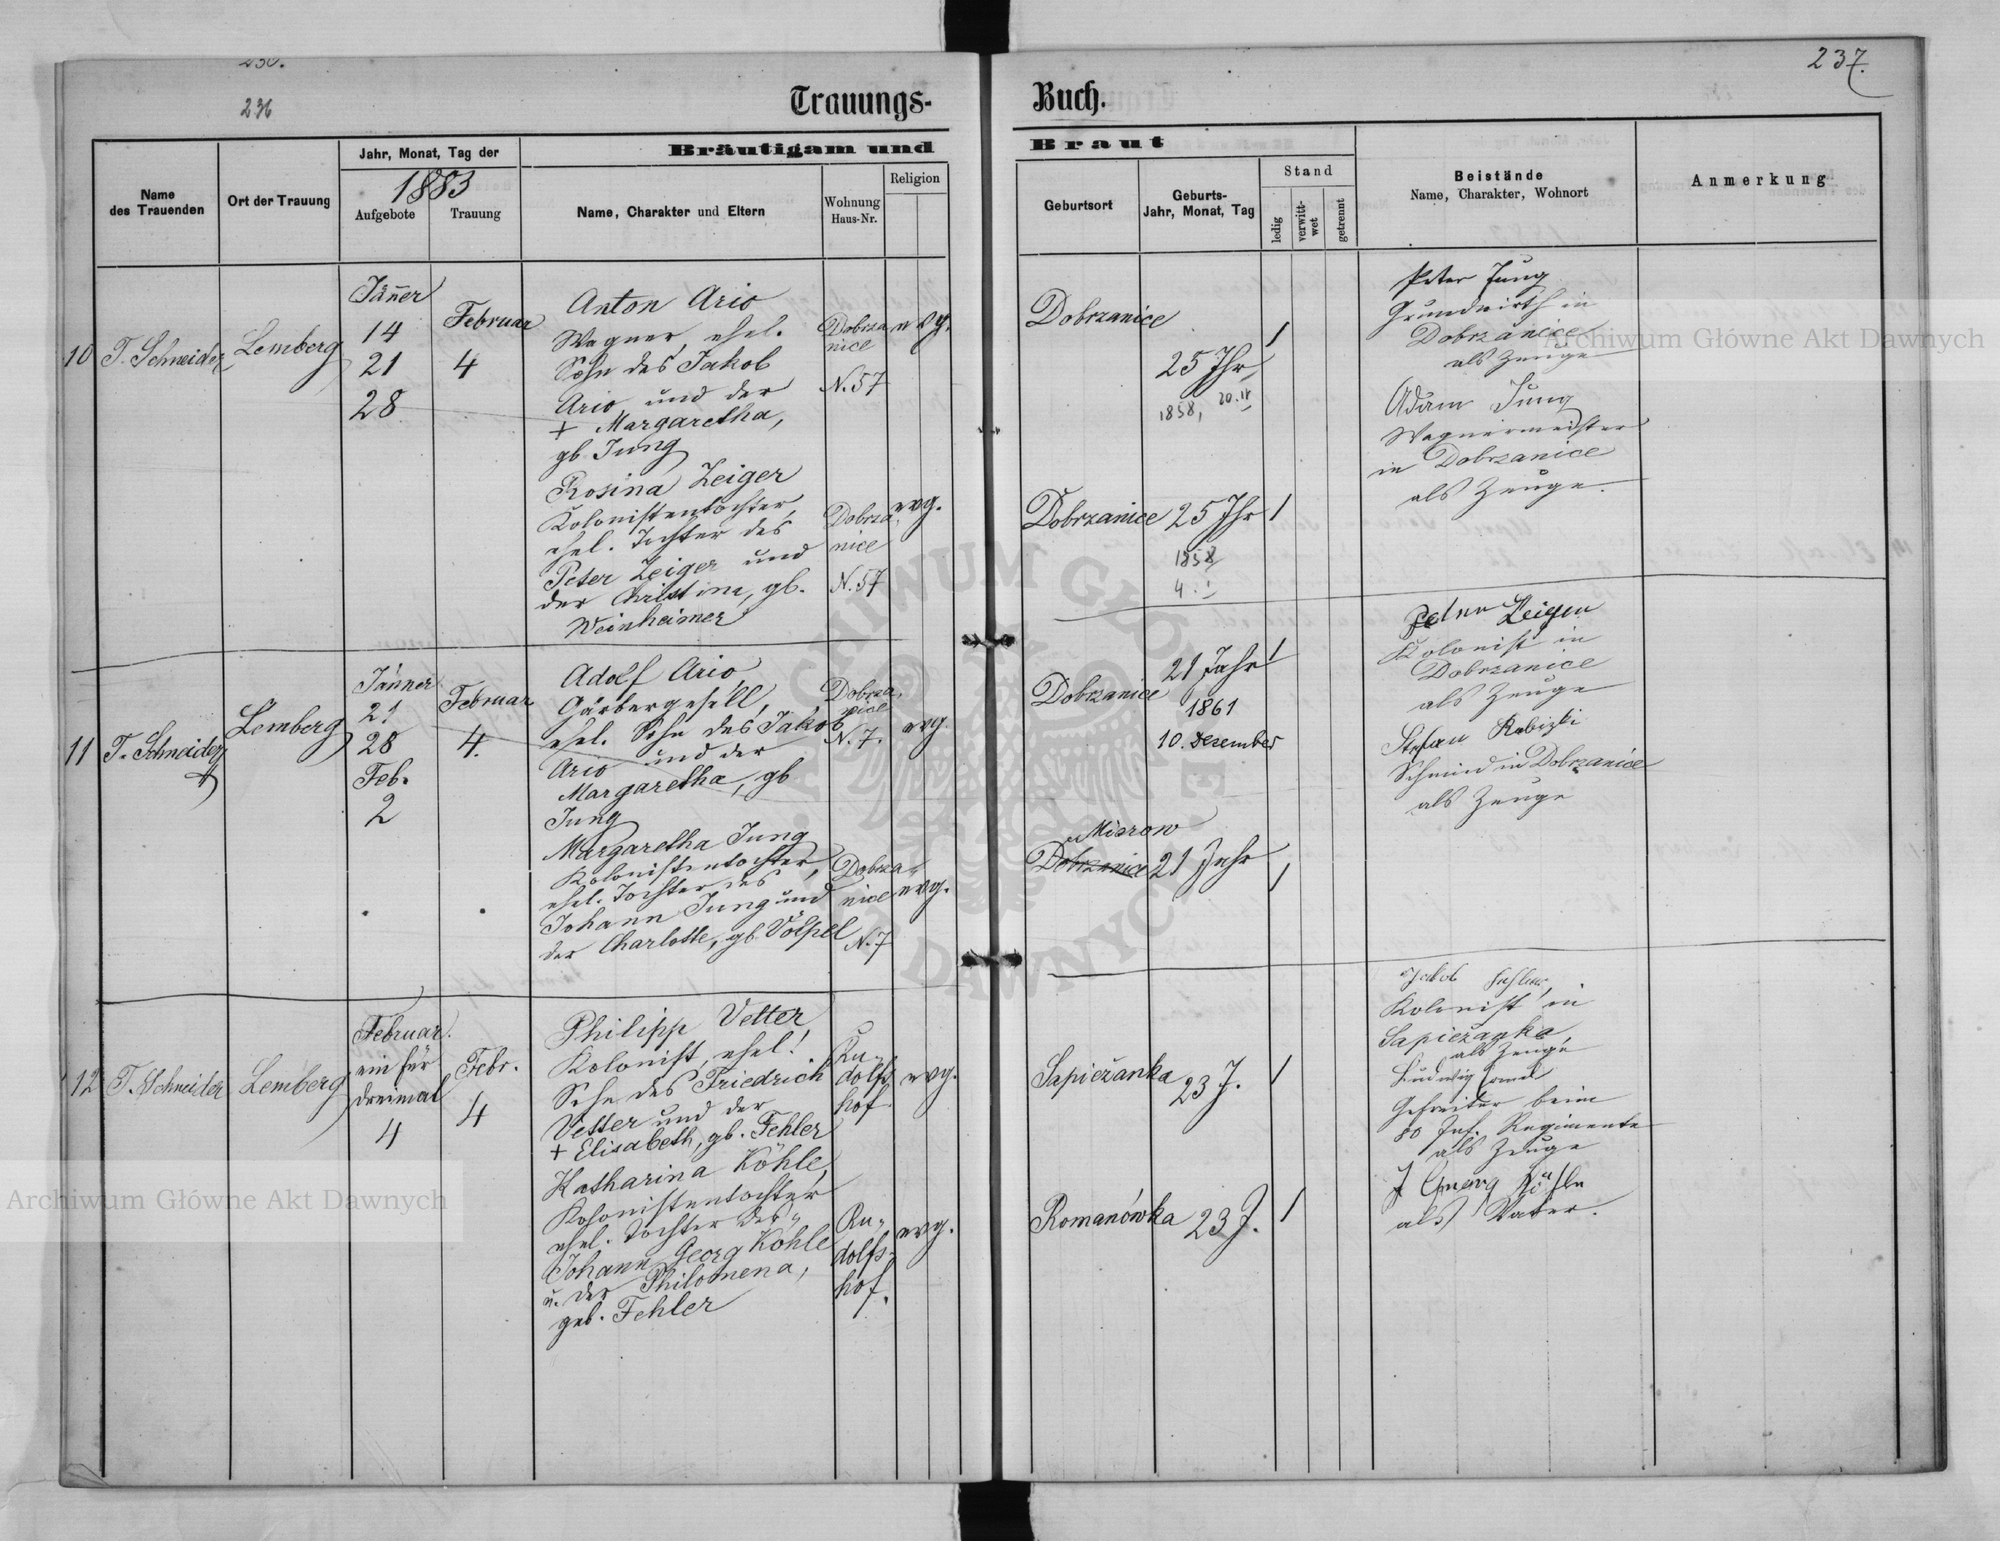 236
Trauungs-
Name
des Trauenden
Ort der Trauung
Jahr, Monat, Tag der
1883
Aufgebote
Trauung
Bräutigam und
Name, Charakter und Eltern
Wohnung
Haus-Nr.
Religion
10
T. Schneider
Lemberg
Jänner
14
21
28
Februar
4
Anton Ario
Wagner, ehel.
Sohn des Jakob
Ario und der
+ Margaretha,
gb. Jung
Dobrza
nice
N. 57
evg.
Rosina Zeiger
Kolonistentochter,
ehel. Tochter des
Peter Zeiger und
der Christine, gb.
Weinheimer
Dobrza
nice
N. 57
evg.
11
T. Schneider
Lemberg
Jänner
21
28
Feb.
2
Februar
4.
Adolf Ario,
Gärbergesell,
ehel. Sohn des Jakob
Ario und der
Margaretha, gb
Jung
Dobrza,
nice
N. 7.
evg
Margaretha Jung
Kolonistentochter,
ehel. Tochter des
Johann Jung und
der Charlotte, gb. Völpel
Dobrza-
nice
N. 7
evg.
12
T. Schneider
Lemberg
Februar.
ein für
dreimal
4
Febr.
4
Philipp Vetter,
Kolonist, ehel.
Sohn des Friedrich
Vetter und der
+ Elisabeth, gb. Fehler
Ru-
dolfs-
hof.
evg.
Katharina Köhle,
Kolonistentochter
ehel. Tochter des
Johann Georg Köhle
u. der Philomena,
geb. Fehler
Ru-
dolfs-
hof.
evg.
237.
Buch.
Braut
Geburtsort
Geburts-
Jahr, Monat, Tag
Stand
ledig
verwitt-
wet
getrennt
Beistände
Name, Charakter, Wohnort
Anmerkung
Dobrzanice
25 Jhr
1858, 20.
/
Peter Jung
Grundwirth in
Dobrzanice
als Zeuge
Adam Jung
Wagnermeister
in Dobrzanice
als Zeuge.
Dobrzanice
25 Jhr
1858
4.
/
Dobrzanice
21 Jahr
1861
10. Dezember
/
Peter Zeiger
Kolonist in
Dobrzanice
als Zeuge
Stefan
Schmied in Dobrzanice
als Zeuge
Mierow
Dobrzanice
21 Jahr
/
Sapieżanka
23 J.
/
Jakob
Kolonist in
Sapieżanka,
als Zeuge
Ludwig
Gefreiter beim
80 Inf. Regimente
als Zeuge
J Georg Köhle
als Vater.
Romanówka
23 J.
/
Archiwum Główne Akt Dawnych
Archiwum Główne Akt Dawnych
ARCHIWUM GŁÓWNE AKT DAWNYCH